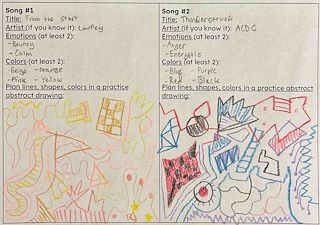 Song #1
Title: From the Start
Artist (if you know it): Laufey
Emotions (at least 2):
- Bouncy
- Calm
Colors (at least 2):
- Beige - Orange
- Pink - Yellow
Plan lines, shapes, colors in a practice
abstract drawing:
Song #2
Title: Thunderstruck
Artist (if you know it): ACDC
Emotions (at least 2):
- Anger
- Energetic
Colors (at least 2):
- Blue - Purple
- Red - Black
Plan lines, shapes, colors in a practice abstract
drawing: